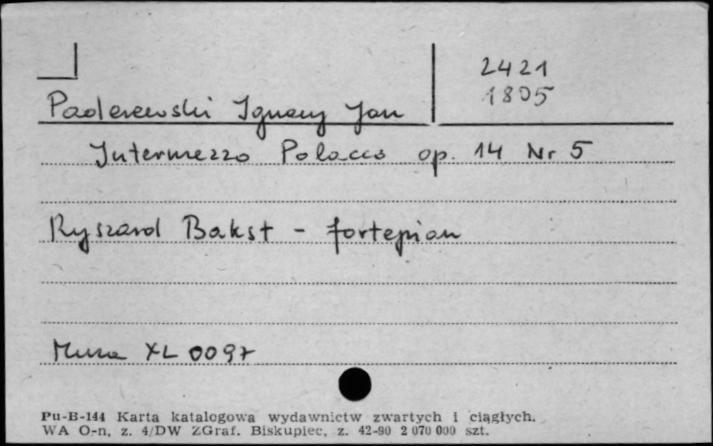 2421
1805
Paderewski Ignacy Jan
Intermezzo Polacco op. 14 Nr 5
Ryszard Bakst - fortepian
Muza XL 0097
Pu-B-144 Karta katalogowa wydawnictw zwartych i ciągłych.
WA O-n, z. 4/DW ZGraf. Biskupiec, z. 42-90 2 070 000 szt.